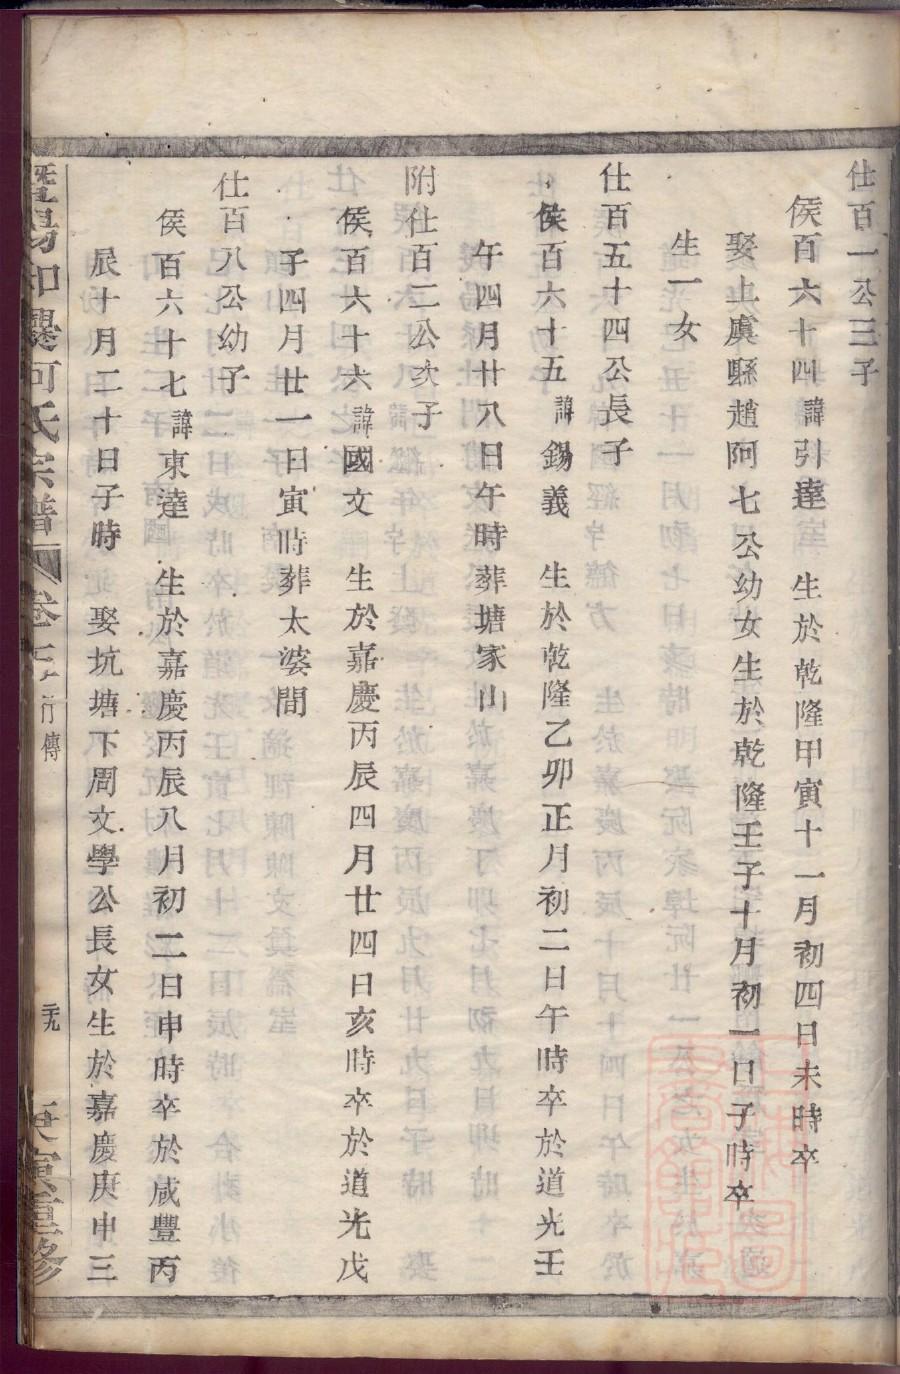 仕百一公三子
侯百六十四諱引達　生於乾隆甲寅十一月初四日未時卒
娶上虞縣趙阿七公幼女生於乾隆壬子十月初一日子時卒
生一女
仕百五十四公長子
侯百六十五諱錫義　生於乾隆乙卯正月初二日午時卒於道光壬
午四月廿八日午時葬塘家山
附仕百二公次子
侯百六十六諱國文　生於嘉慶丙辰四月廿四日亥時卒於道光戊
子四月廿一日寅時葬太婆間
仕百八公幼子
侯百六十七諱東達　生於嘉慶丙辰八月初二日申時卒於咸豐丙
辰十月二十日子時　娶坑塘下周文學公長女生於嘉慶庚申三
暨陽和 河氏宗譜 卷 行傳 寅重修